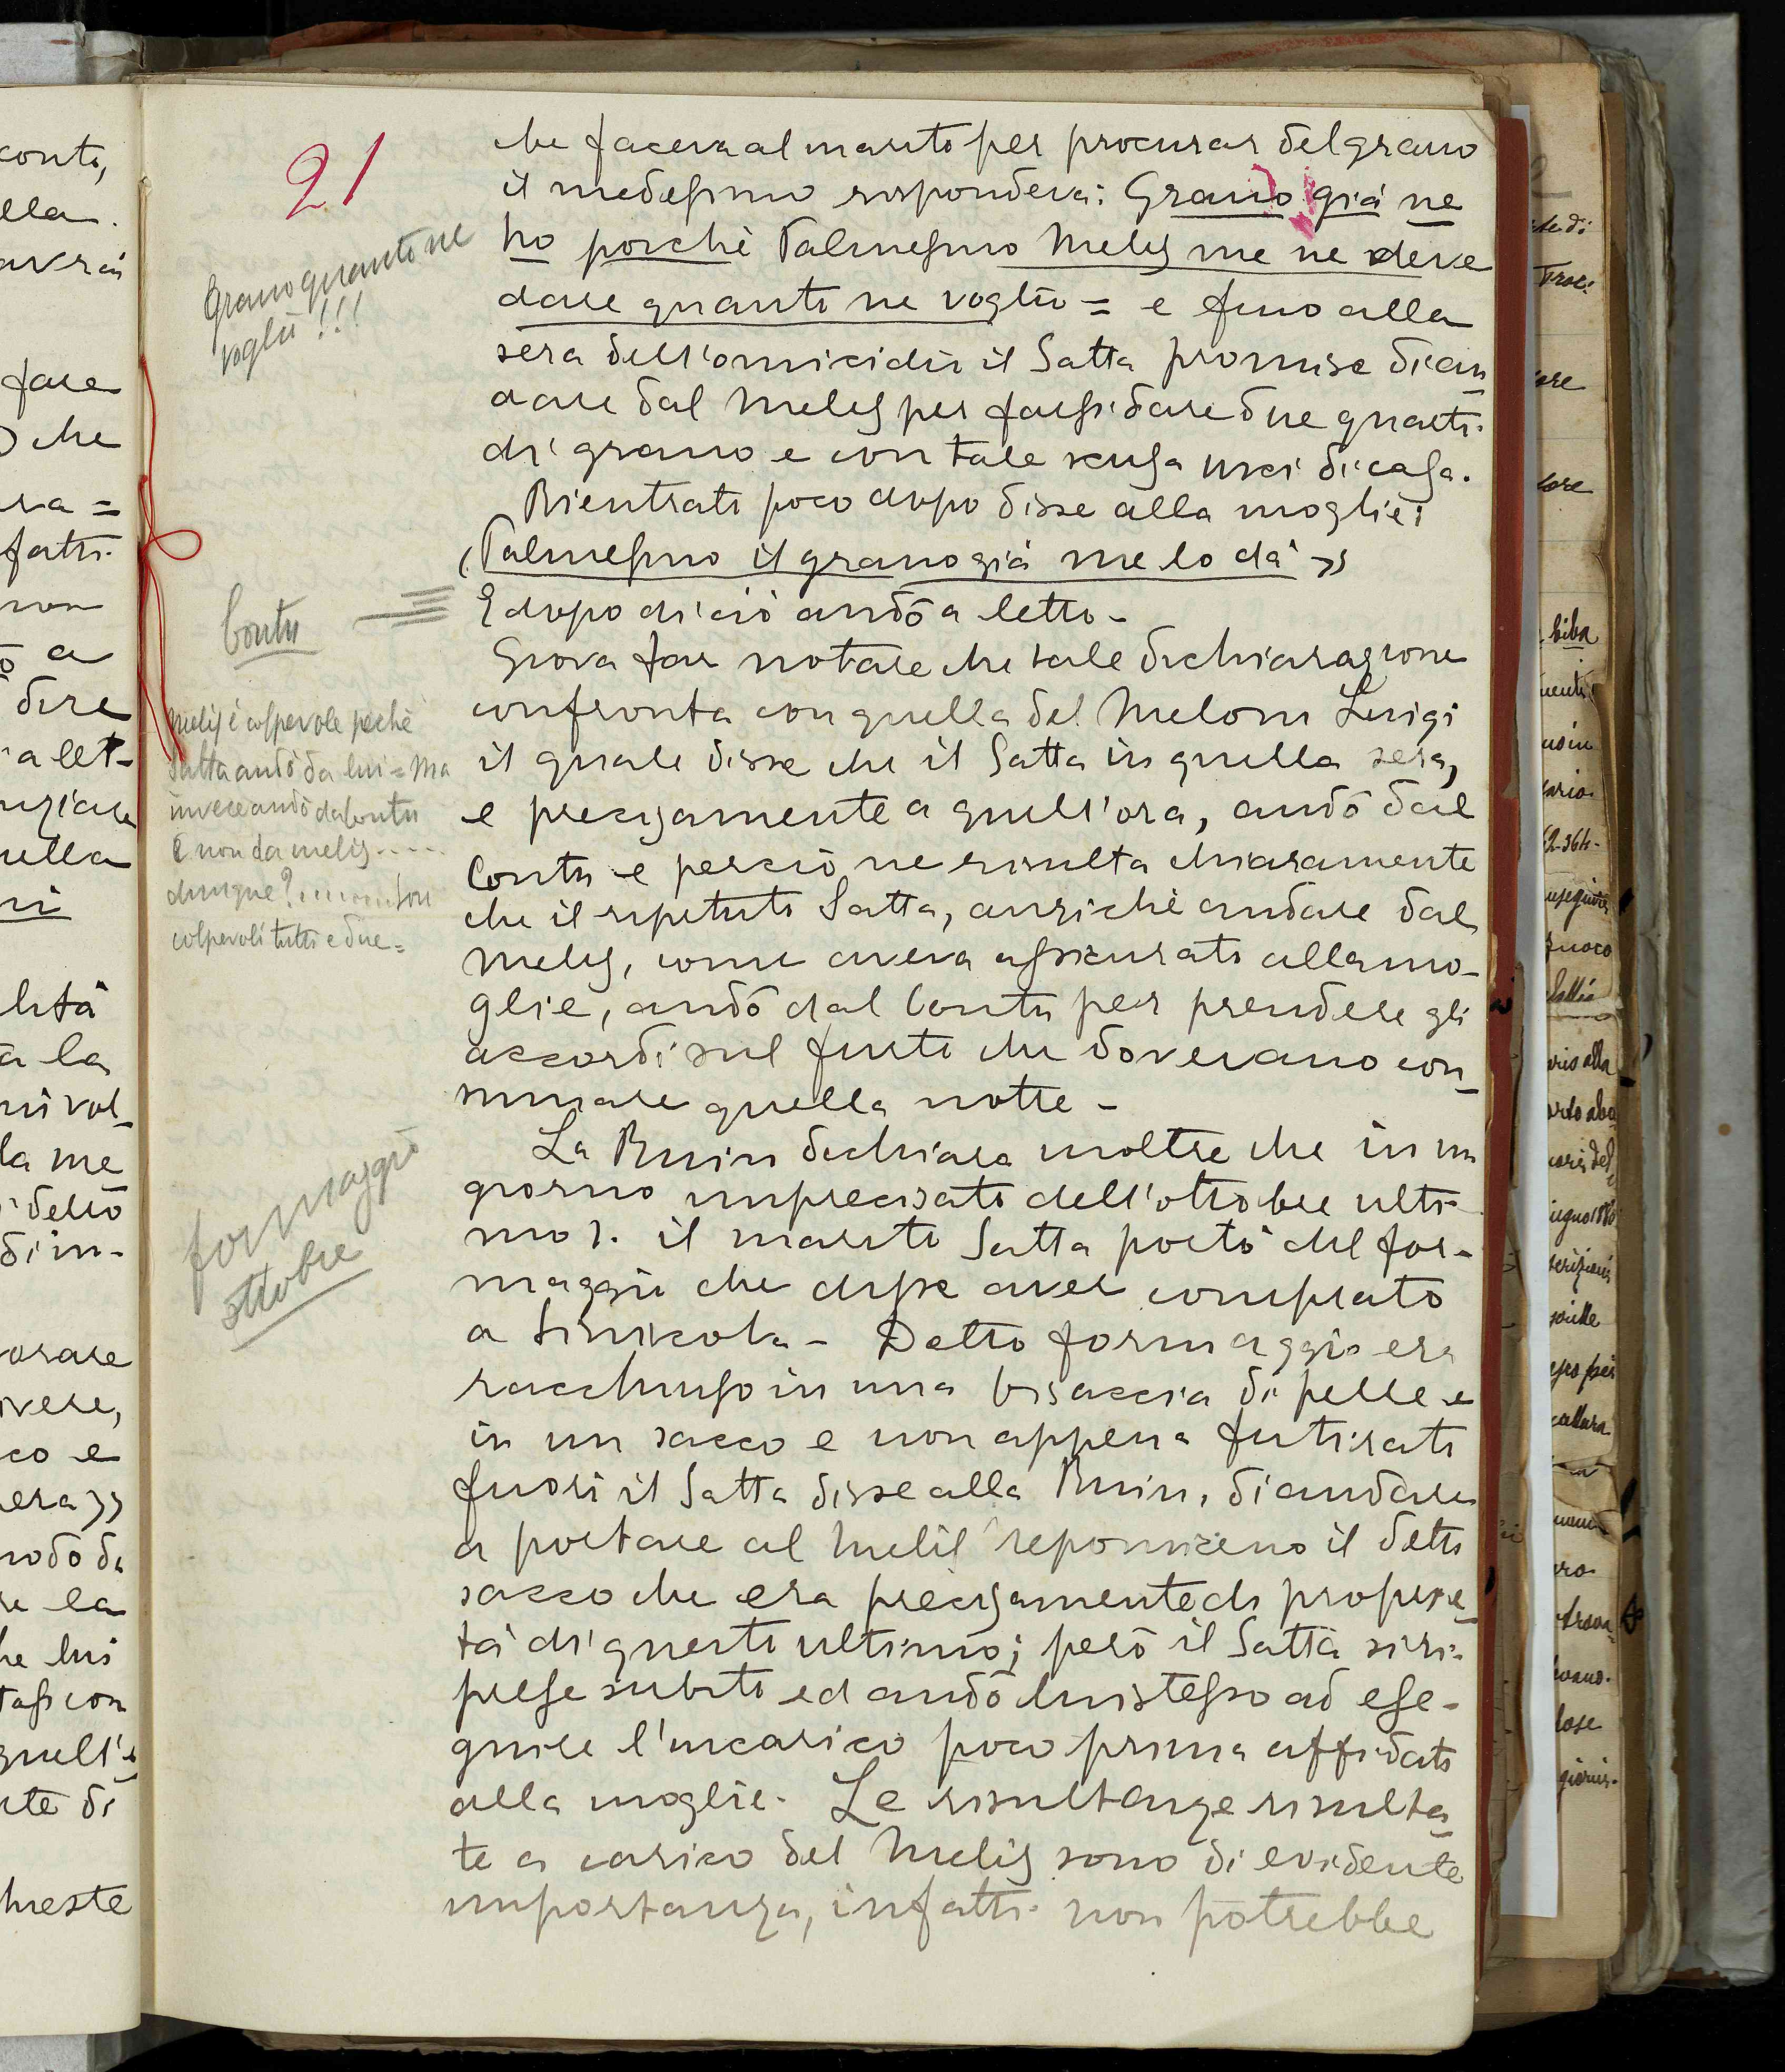 21
che faceva al marito per procurar del grano
il medesimo rispondeva: Grano già ne
ho poichè Palmesino Melis me ne deve
dare quanto ne voglio = e fino alla
sera dell'omicidio il Satta promise di an_
dare dal Melis per farsi dare due quarti
di grano e con tale scusa uscì di casa.
Rientrato poco dopo disse alla moglie:
(Palmesino il grano già me lo dà »
E dopo di ciò andò a letto -
Giova far notare che tale dichiarazione
confronta con quella del Meloni Luigi
il quale disse che il Satta in quella sera,
e precisamente a quell'ora, andò dal
Contu e perciò ne risulta chiaramente
che il ripetuto Satta, anzichè andare dal
Melis, come aveva assicurato alla mo-
glie, andò dal Contu per prendere gli
accordi sul furto che dovevano con_
sumare quella notte -
La Ruiu dichiara inoltre che in un
giorno imprecisato dell'ottobre ulti-
mo s. il marito Satta portò del for-
maggio che disse aver comprato
a Siniscola - Detto formaggio era
racchiuso in una bisaccia di pelle e
in un sacco e non appena fu tirato
fuori il Satta disse alla Ruiu, di andare
a portare al Melis reponiceno il detto
sacco che era precisamente di proprie_
tà di questi ultimo; però il Satta si ri-
prese subito ed andò lui stesso ad ese-
guire l'incarico poco prima affidato
alla moglie. Le risultanze risulta_
te a carico del Melis sono di evidente
importanza, infatti non potrebbe
Grano quanto ne
voglio !!!
Contu
Melis è colpevole perchè
Satta andò da lui = Ma
invece andò da Contu
e non da Melis .....
dunque? ...... son
colpevoli tutti e due =
formaggio
ottobre
conto,
ella
avrai
fare
che
ra =
fatti
non
a
dire
a let-
nziare
nella
ni
lità
a la
la me
di in-
vere,
co e
era »
modo di
e la
he lui
quell'a
nte di